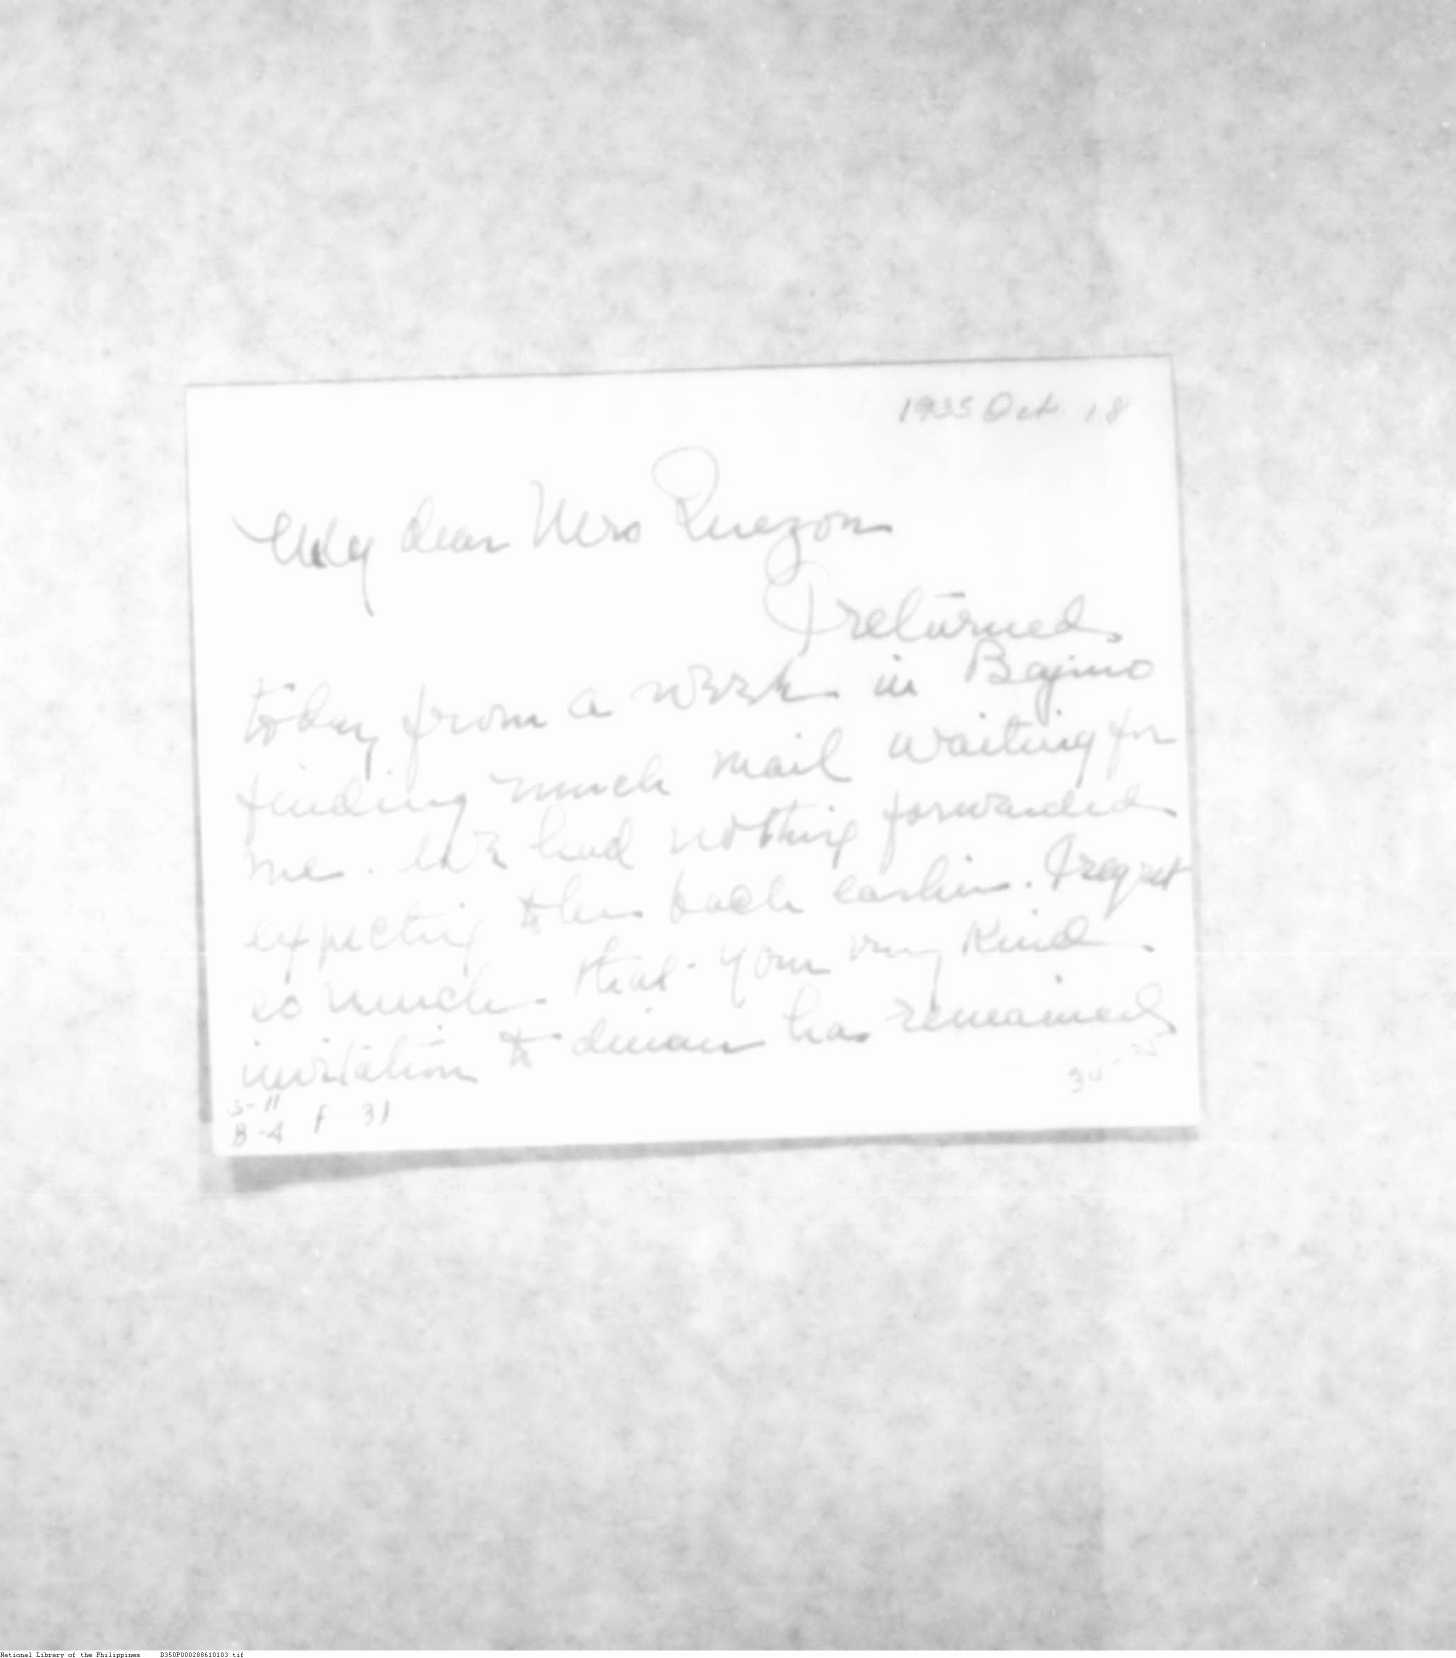 1935 Oct. 18
My dear Mrs Quezon
I returned
today from a week in Baguio
finding much mail waiting for
me. We had nothing forwarded
expecting to be back earlier. I regret
so much that your very kind
invitation to dinner has remained
S-11
B-4 F 31
National Library of the Philippines D350P000208610103.tif